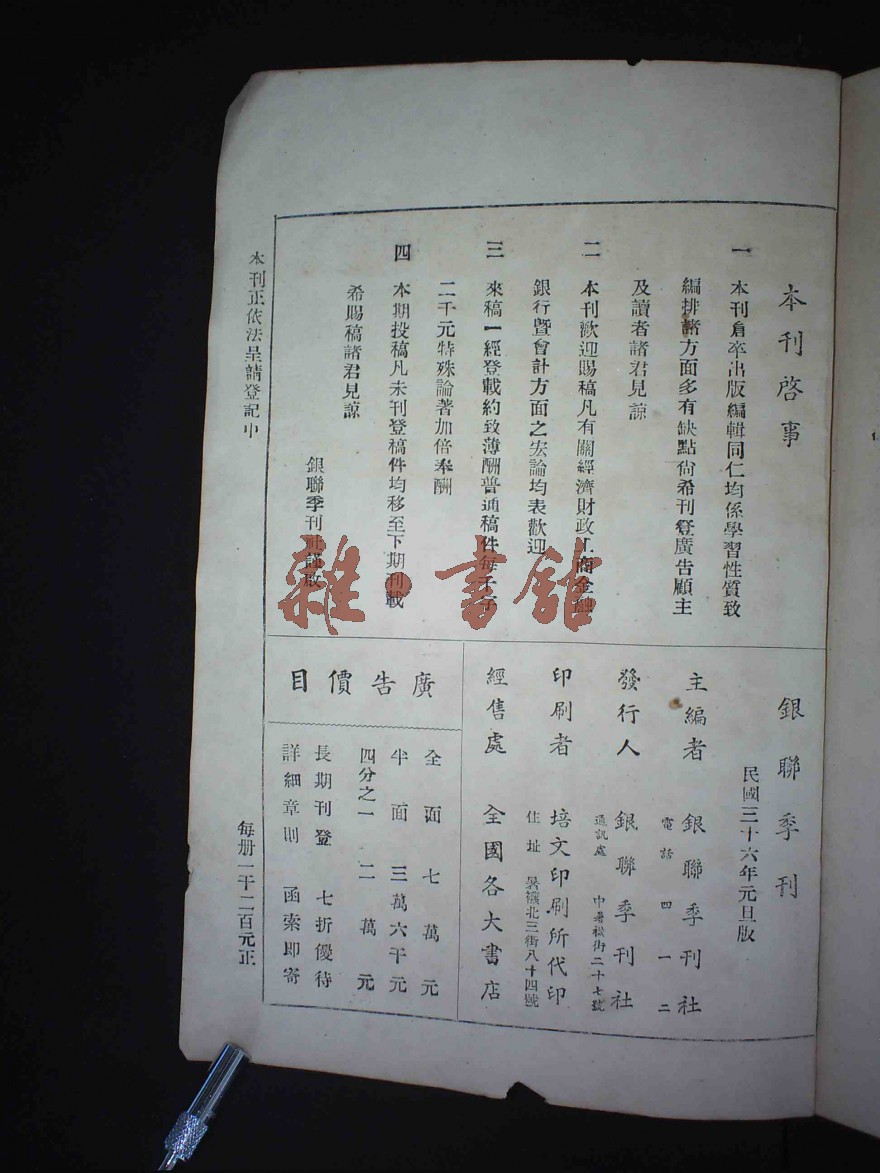 本刊啓事
一 本刊倉卒出版編輯同仁均係學習性質致
編排諸方面多有缺點尙希刊登廣告顧主
及讀者諸君見諒
二 本刊歡迎賜稿凡有關經濟財政工商金融
銀行曁會計方面之宏論均表歡迎
三 來稿一經登載約致薄酬普通稿件每千字
二千元特殊論著加倍奉酬
四 本期投稿凡未刊登稿件均移至下期刊載
希賜稿諸君見諒
銀聯季刊社謹啟
銀聯季刊
民國三十六年元旦版
主編者 銀聯季刊社
電話 四一二
發行人 銀聯季刊社
通訊處 中署襪街二十七號
印刷者 培文印刷所代印
住址 暑襪北三街八十四號
經售處 全國各大書店
廣告價目
全面 七萬元
半面 三萬六千元
四分之一 二萬元
長期刊登 七折優待
詳細章則 函索即寄
本刊正依法呈請登記中
每册一千二百元正
雜·書館